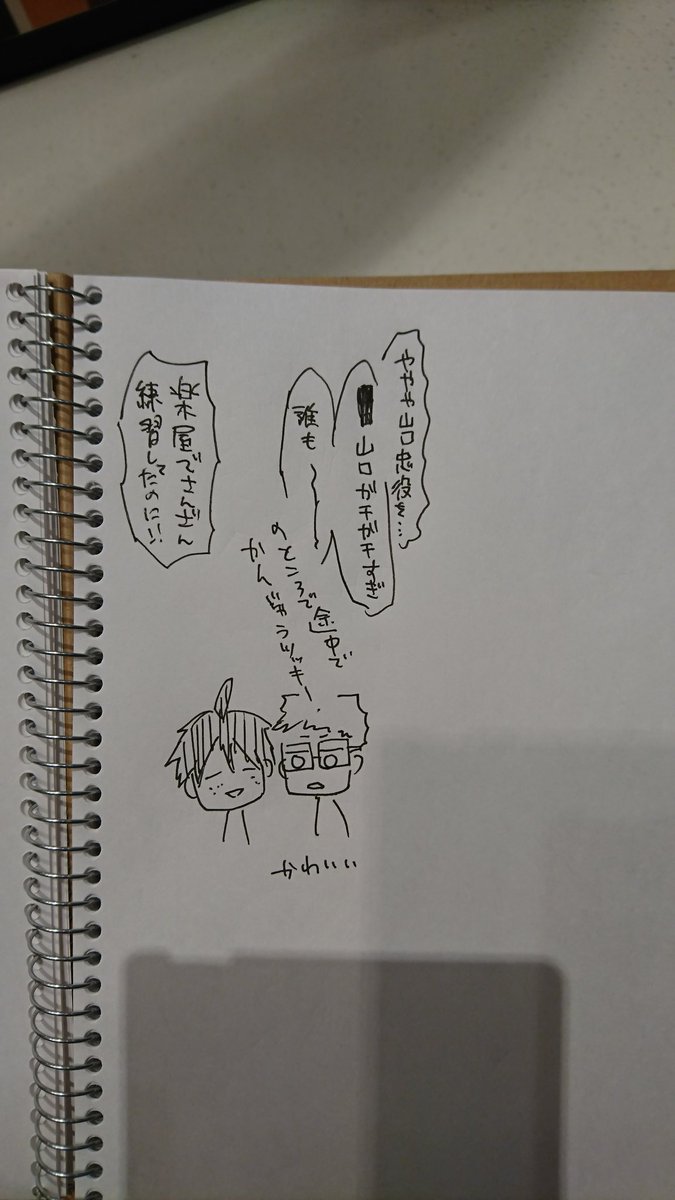 ややや山口忠役を…
山口ガチガチすぎ
誰も
のところで途中で
かんじゃうツッキー
楽屋でさんざん
練習してたのに!!
かわいい